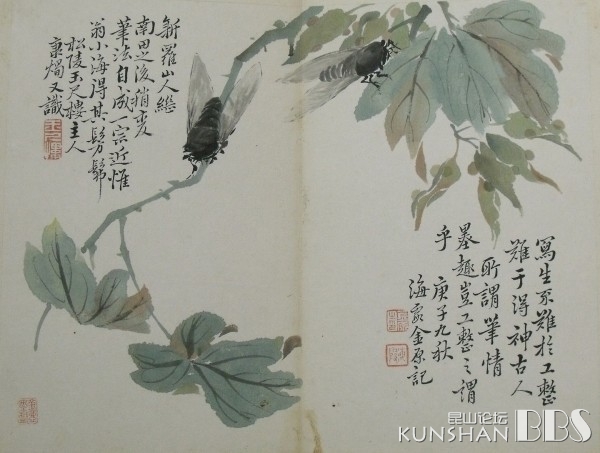 寫生不難於工整
難于得神古人
所謂筆情
墨趣豈工整之謂
乎 庚子九秋
海 金原記
新羅山人繼
南田之後稍變
筆法自成一宗近惟
翁小海得其髣髴
松陵玉尺樓主人
又識
昆山论坛
KUNSHAN BBS